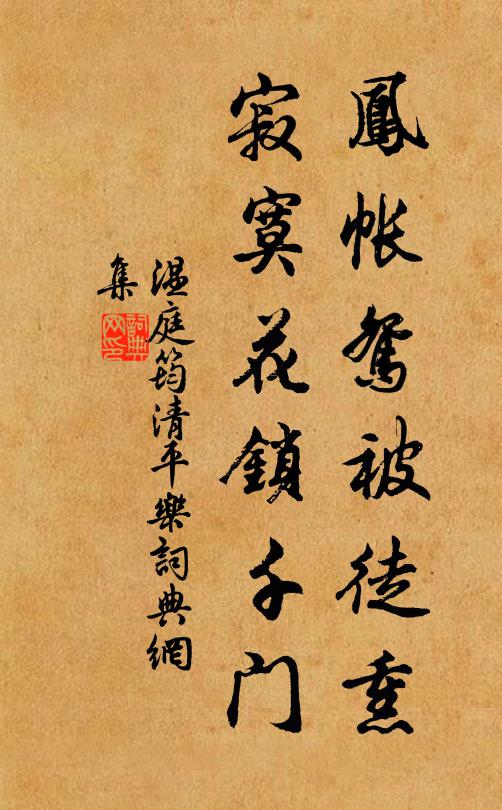 鳳帳鴛被徒熏
寂寞花鎖千門
温庭筠清平樂詞典網
集
詞典
网印